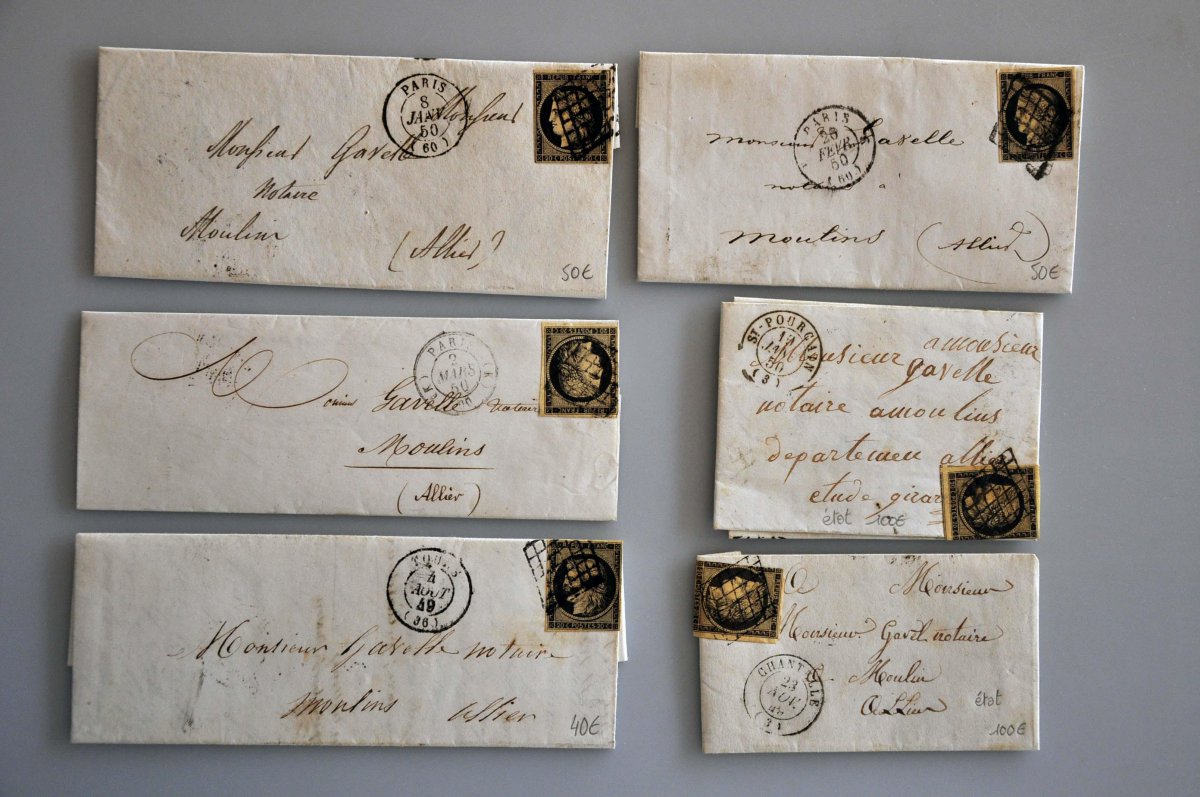 PARIS
8
JANV
50
(60)
REPUB FRANC
20 C POSTES 20 C
Monsieur
Monsieur Gavelle
Notaire
Moulins
(Allier)
50€
PARIS
FEVR
50
(60)
REPUB FRANC
monsieur Gavelle
notaire à
moulins (Allier)
50€
PARIS
2
MARS
50
Gavelle notaire
Moulins
(Allier)
ST-POURÇAIN
50
(3)
amonsieur
Monsieur
gavelle
notaire amoulins
departemen allie
etude girar
état 100€
TOURS
4
AOUT
49
(36)
20 C POSTES 20 C
Monsieur Gavelle notaire
moulins allier
40€
A Monsieur
Monsieur Gavel notaire
Moulin
Allier
CHANTELLE
23
état
100€